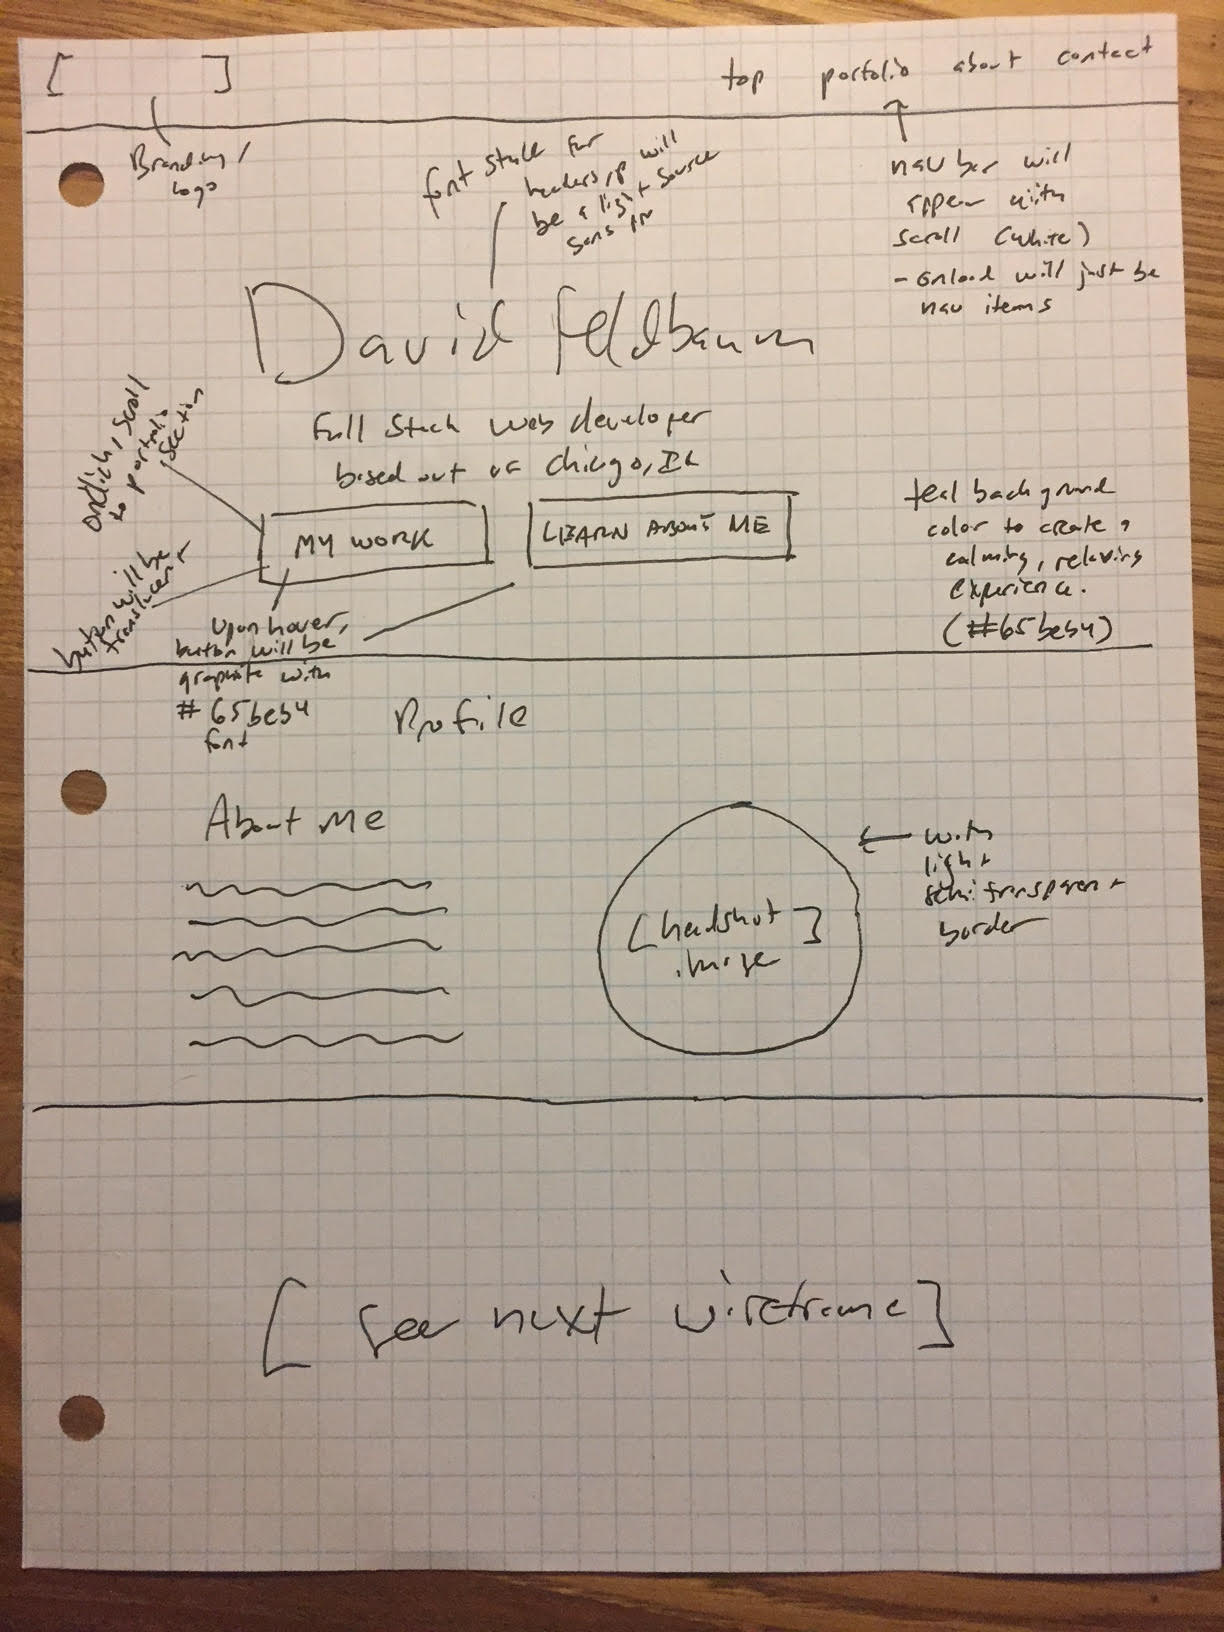 [ ]
top portfolio about contact
Branding/
Logo
font style for
headers, p will
be a light Source
Sans pro
nav bar will
appear with
scroll (white)
- onload will just be
nav items
David Feldbaum
Full Stack web developer
based out of Chicago, IL
onclick, scroll
to portfolio
section
MY WORK
LEARN ABOUT ME
button will be
translucent
upon hover,
button will be
graphite with
#65beb4
font
teal background
color to create a
calming, relaxing
experience.
(#65beb4)
Profile
About Me
[headshot
image]
with
light
semitransparent
border
[see next wireframe]